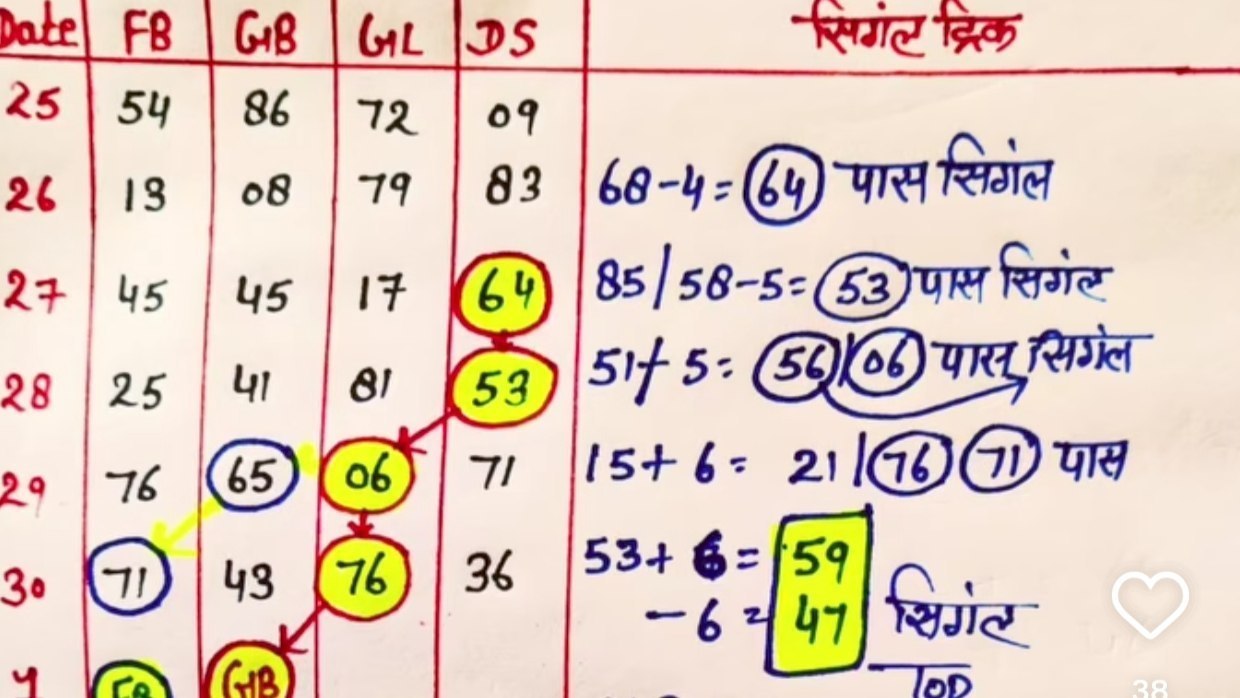 Date FB GB GL DS सिगंल ट्रिक
25 54 86 72 09
26 13 08 79 83 68-4=64 पास सिगंल
27 45 45 17 64 85/58-5=53 पास सिगंल
28 25 41 81 53 51+5=56/06 पास सिगंल
29 76 65 06 71 15+6= 21/76 71 पास
30 71 43 76 36 53+6=59
-6=47 सिगंल
1 FB GB TOD
38